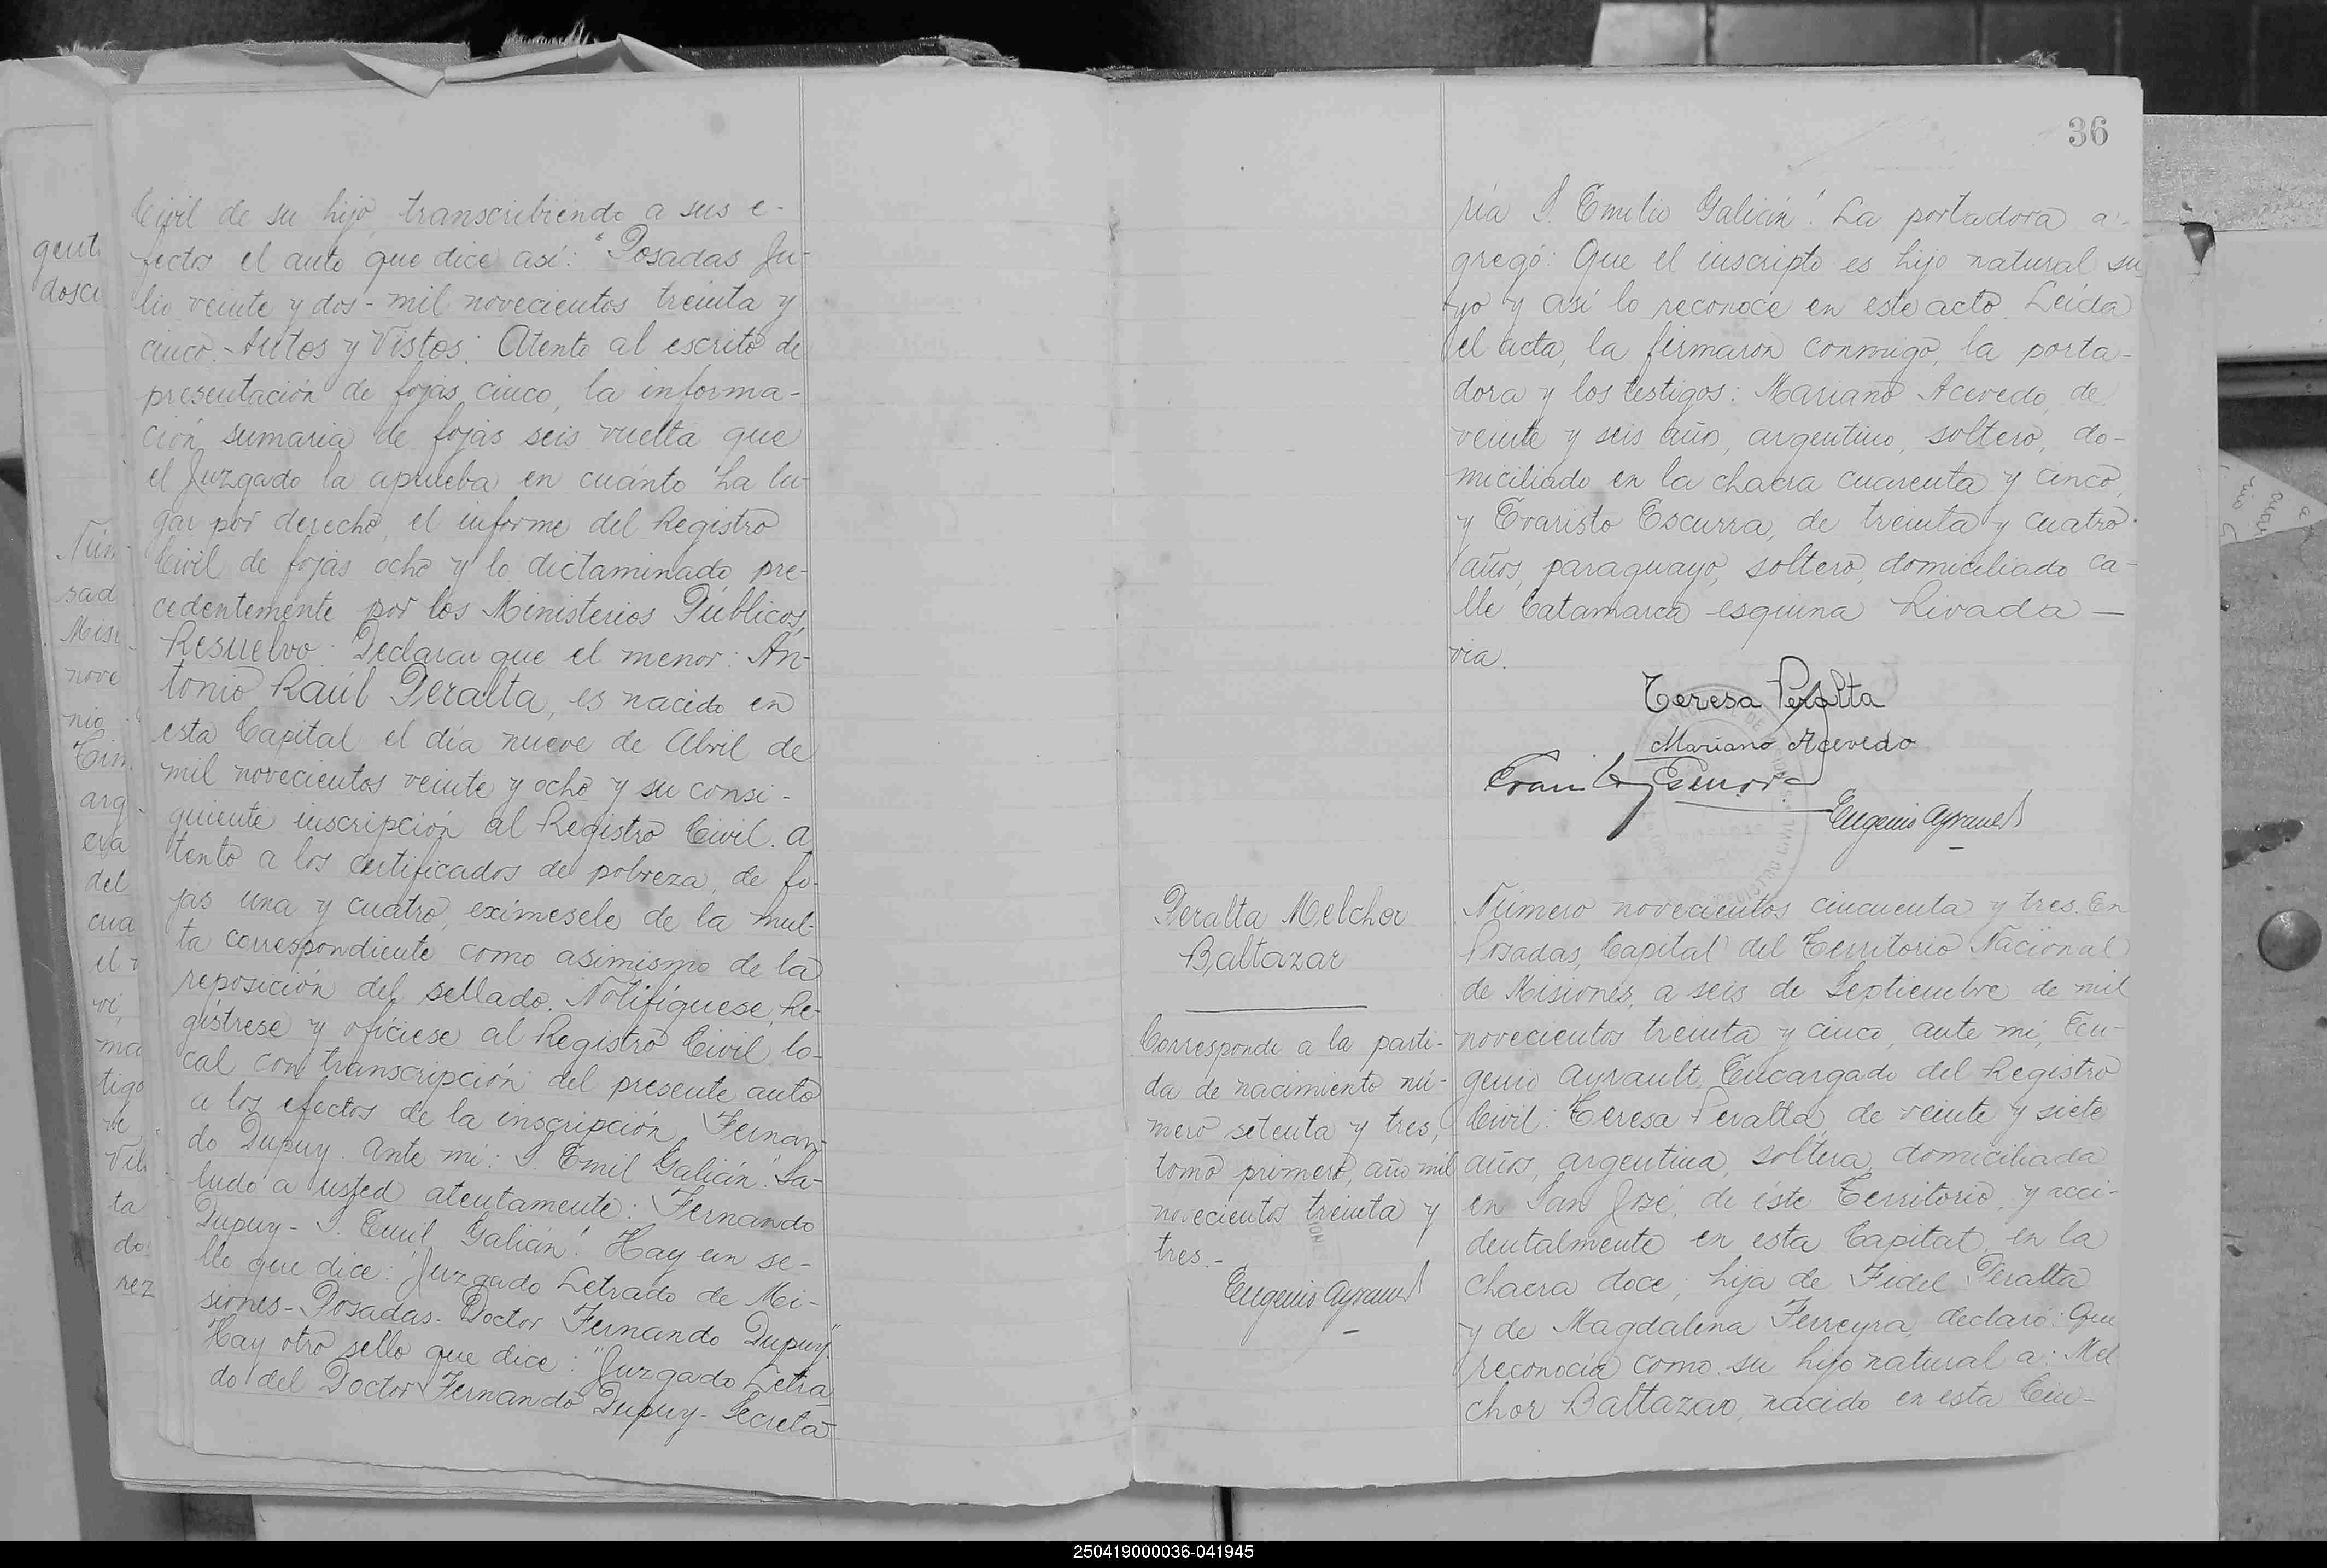 Civil de su hijo, transcribiendo a sus e-
fectos el auto que dice así: "Posadas Ju-
lio veinte y dos - mil novecientos treinta y
cinco. - Autos y Vistos: Atento al escrito de
presentación de fojas cinco, la informa-
ción sumaria de fojas seis vuelta que
el Juzgado la aprueba en cuánto ha lu-
gar por derecho, el informe del Registro
Civil de fojas ocho y lo dictaminado pre-
cedentemente por los Ministerios Públicos,
Resuelvo: Declarar que el menor: An-
tonio Raúl Peralta, es nacido en
esta Capital el día nueve de Abril de
mil novecientos veinte y ocho y su consi-
guiente inscripción al Registro Civil. A
tento a los certificados de pobreza, de fo-
jas una y cuatro, exímesele de la mul-
ta correspondiente como asimismo de la
reposición del sellado. Notifíquese, Re-
gístrese y ofíciese al Registro Civil lo-
cal con transcripción del presente auto
a los efectos de la inscripción. Fernan-
do Dupuy. Ante mi: S. Emil Galián". Sa-
ludo a usted atentamente: Fernando
Dupuy - S. Emil Galián". Hay un se-
llo que dice: "Juzgado Letrado de Mi-
siones - Posadas - Doctor Fernando Dupuy"
Hay otro sello que dice: "Juzgado Letra
do del Doctor Fernando Dupuy - Secreta
gent
dosci
Núm
sad
Misi
nove
nio
arg
era
del
cua
el
vi,
ma
tigo
de
Vil
ta
do
rez
36
ría S. Emilio Galián". La portadora a-
gregó: Que el inscripto es hijo natural su
yo y así lo reconoce en este acto. Leida
el acta, la firmaron conmigo, la porta-
dora y los testigos: Mariano Acevedo, de
veinte y seis año, argentino, soltero, do-
miciliado en la chacra cuarenta y cinco,
y Evaristo Escurra, de treinta y cuatro
años, paraguayo, soltero, domiciliado ca-
lle Catamarca esquina Rivada —
via.
Teresa Peralta
Mariano Acevedo
Eugenio Ayrault
Peralta Melchor
Baltazar
Corresponde a la parti-
da de nacimiento nú-
mero setenta y tres,
tomo primero, año mil
novecientos treinta y
tres. -
Eugenio Ayrault
Número novecientos cincuenta y tres. En
Posadas, Capital del Territorio Nacional
de Misiones, a seis de Septiembre de mil
novecientos treinta y cinco, ante mi, Eu-
genio Ayrault, Encargado del Registro
Civil: Teresa Peralta, de veinte y siete
años, argentina, soltera, domiciliada
en San José, de éste Territorio, y acci-
dentalmente en esta Capital, en la
chacra doce; hija de Fidel Peralta
y de Magdalena Ferreyra, declaró: Que
reconocía como su hijo natural a: Mel
chor Baltazar, nacido en esta Ciu-
250419000036-041945